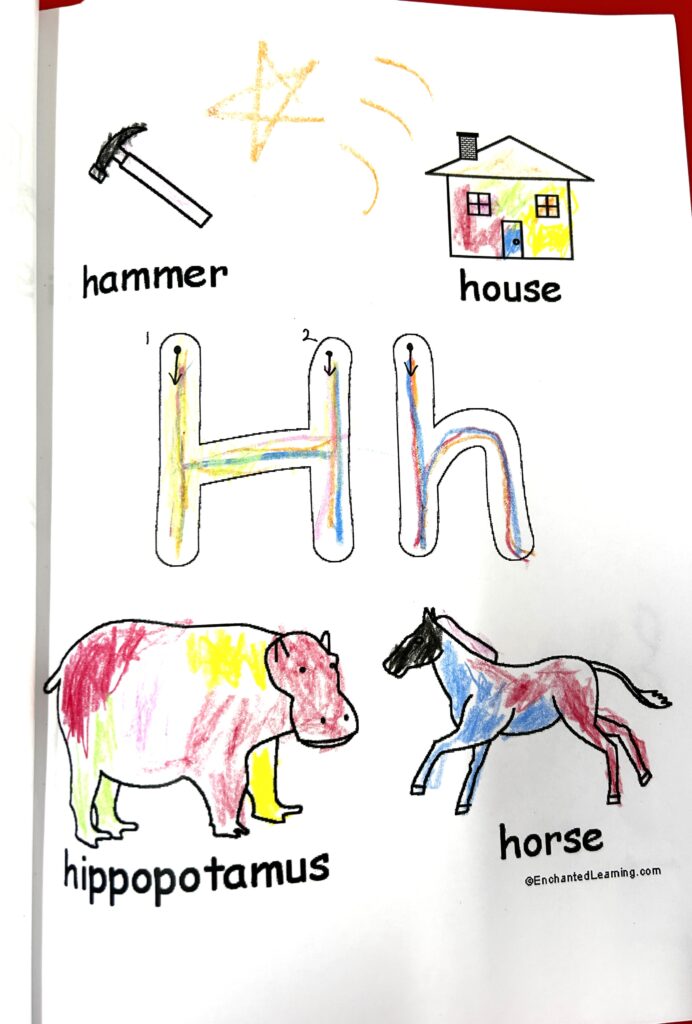 hammer
house
1 2
H h
hippopotamus
horse
©EnchantedLearning.com